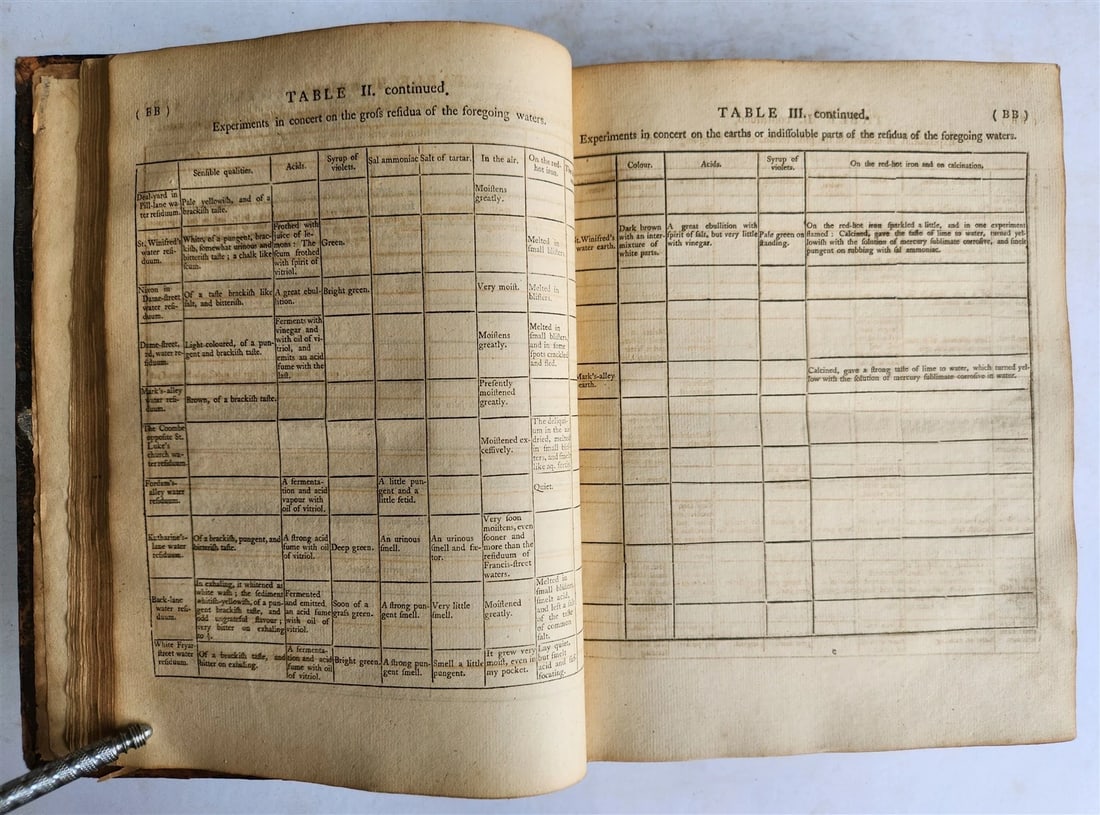 ( BB )
TABLE II. continued.
Experiments in concert on the groſs reſidua of the foregoing waters.
Senſible qualities.
Acids.
Syrup of
violets.
Sal ammoniac
Salt of tartar.
In the air.
On the red-
hot iron.
Deal-yard in
Pill-lane wa-
ter reſiduum.
Pale yellowiſh, and of a
brackiſh taſte.
Moiſtens
greatly.
St. Winifred's
water reſi-
duum.
White, of a pungent, brac-
kiſh, ſomewhat urinous and
bitteriſh taſte; a chalk like
ſcum.
Frothed with
juice of le-
mons: The
ſcum frothed
with ſpirit of
vitriol.
Green.
Melted in
ſmall bliſters.
Nixon in
Dame-ſtreet
water reſi-
duum.
Of a taſte brackiſh like
ſalt, and bitteriſh.
A great ebul-
lition.
Bright green.
Very moiſt.
Melted in
bliſters.
Dame-ſtreet,
2d, water re-
ſiduum.
Light-coloured, of a pun-
gent and brackiſh taſte.
Ferments with
vinegar and
with oil of vi-
triol, and
emits an acid
fume with the
laſt.
Moiſtens
greatly.
Melted in
ſmall bliſters,
and in ſome
ſpots crackled
and
Mark's-alley
water reſi-
duum.
Brown, of a brackiſh taſte.
Preſently
moiſtened
greatly.
The Coombe
oppoſite St.
Luke's
church wa-
ter reſiduum.
Moiſtened ex-
ceſſively.
The deliqui-
um in the air
dried, melted
in ſmall bliſ-
ters, and
like aq. fortis.
alley water
reſiduum.
A fermenta-
tion and acid
vapour with
oil of vitriol.
A little pun-
gent and a
little fetid.
Quiet.
Katharine's-
lane water
reſiduum.
Of a brackiſh, pungent, and
bitteriſh taſte.
A ſtrong acid
fume with oil
of vitriol.
Deep green.
An urinous
ſmell.
An urinous
ſmell and fœ-
tor.
Very ſoon
moiſtens, even
ſooner and
more than the
reſiduum of
Francis-ſtreet
waters.
Back-lane
water reſi-
duum.
In exhaling, it whitened as
white waſh; the ſediment
whitiſh-yellowiſh, of a pun-
gent brackiſh taſte, and
odd ungrateful flavour;
very bitter on exhaling
to
Fermented
and emitted
an acid fume
with oil of
vitriol.
Soon of a
graſs green.
A ſtrong pun-
gent ſmell.
Very little
ſmell.
Moiſtened
greatly.
Melted in
ſmall bliſters,
ſmelt acid,
and left a
of the taſte
of common
ſalt.
White Fryar-
ſtreet water
reſiduum.
Of a brackiſh taſte, and
bitter on exhaling.
A fermenta-
tion and acid
fume with oil
of vitriol.
Bright green.
A ſtrong pun-
gent ſmell.
Smell a little
pungent.
It grew very
moiſt, even in
my pocket.
Lay quiet,
but ſmelt
acid and ſuf-
focating.
TABLE III. continued.
( BB )
Experiments in concert on the earths or indiſſoluble parts of the reſidua of the foregoing waters.
Colour.
Acids.
Syrup of
violets.
On the red-hot iron and on calcination.
St. Winifred's
water earth.
Dark brown
with an inter-
mixture of
white parts.
A great ebullition with
ſpirit of ſalt, but very little
with vinegar.
Pale green on
ſtanding.
On the red-hot iron ſparkled a little, and in one experiment
flamed: Calcined, gave the taſte of lime to water, turned yel-
lowiſh with the ſolution of mercury ſublimate corroſive, and ſmelt
pungent on rubbing with ſal ammoniac.
Mark's-alley
earth.
Calcined, gave a ſtrong taſte of lime to water, which turned yel-
low with the ſolution of mercury ſublimate corroſive in water.